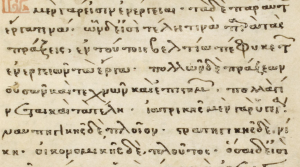 μὲν γάρ εἰσιν ἐνέργειαι· τὰ δὲ παρ' αὐτὰς
ἔργα τινά. ὧν δ' εἰσὶ τέλη τινὰ παρὰ τὰς
πράξεις, ἐν τούτοις βελτίω πέφυκε τῶν
ἐνεργειῶν τὰ ἔργα. πολλῶν δὲ πράξεων
οὐσῶν καὶ τεχνῶν καὶ ἐπιστημῶν, πολλὰ γί
νεται καὶ τὰ τέλη. ἰατρικῆς μὲν γὰρ ὑγίεια
ναυπηγικῆς δὲ πλοῖον. στρατηγικῆς δὲ νί
κη. οἰκονομικῆς δὲ πλοῦτος. ὅσαι δ' εἰσὶ